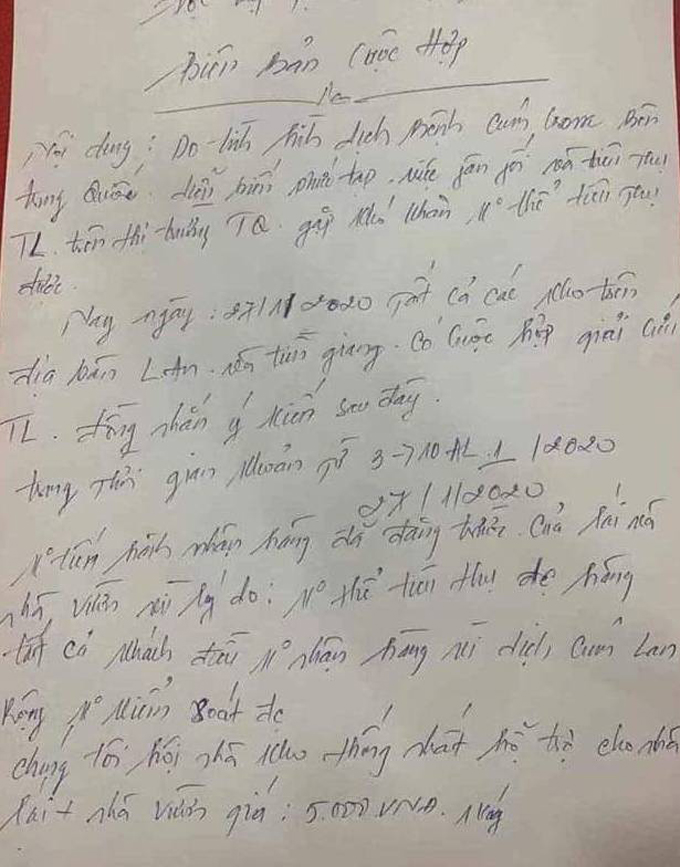 Biên Bản Cuộc Họp
Nội dung : Do tình hình dịch Bệnh Cúm Corona Bên
trung Quốc. diễn biến phức tạp. việc gắn kết và tiêu Thụ
TL. trên thị trường TQ. gặp khó khăn K° thể tiêu Thụ
được.
Nay ngày : 27/1/2020 Tất cả các kho trên
địa bàn L.An. và tiền giang. có cuộc họp giải cứu
TL. đồng nhấn ý kiến sau đây.
trong thời gian khoản Từ 3 -> 10 AL. 1 /2020
27/1/2020
K° tiến hành nhận hàng đã đăng trước. của lái và
nhà vườn với lý do : K° thể tiêu thụ đc hàng
tất cả khách đều K° nhận hàng vì dịch Cúm Lan
Rộng K° kiểm soát đc
chúng tôi hội nhà kho thống nhất hỗ trợ cho nhà
lái + nhà vườn giá : 5.000 VNĐ. 1 kg